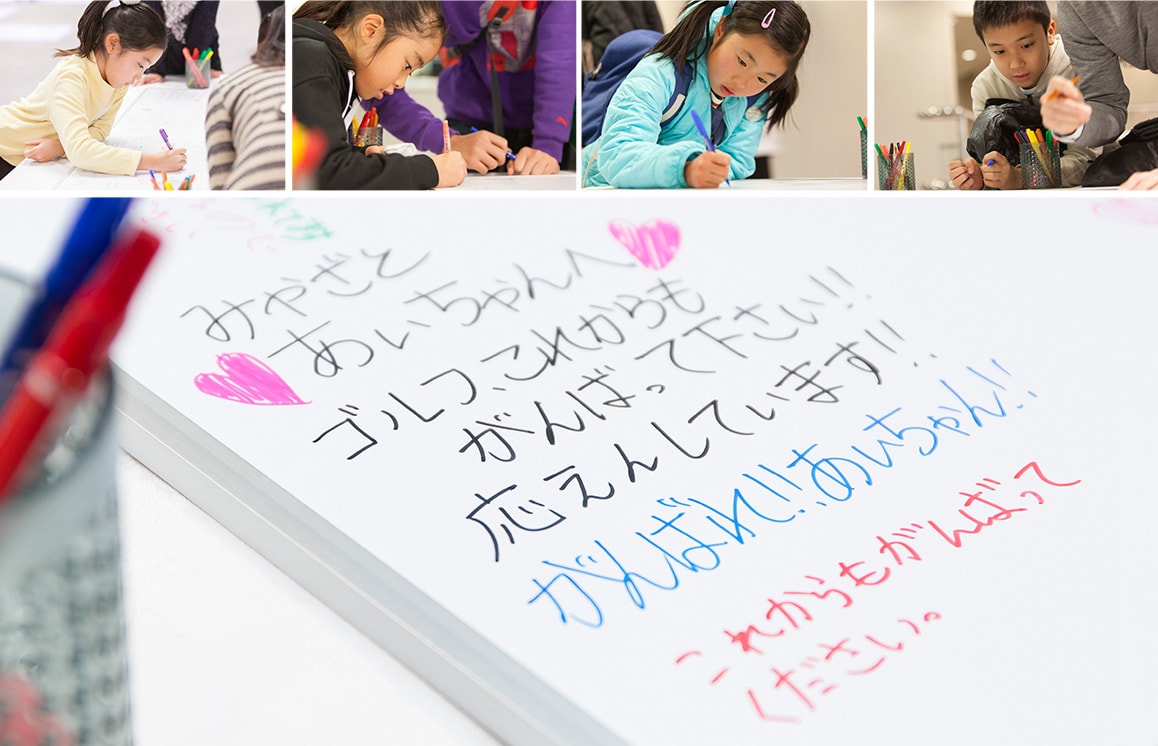 みやざと
あいちゃんへ
ゴルフ、これからも
がんばって下さい!!
応えんしています!!
がんばれ!!あいちゃん!!
これからもがんばって
ください。